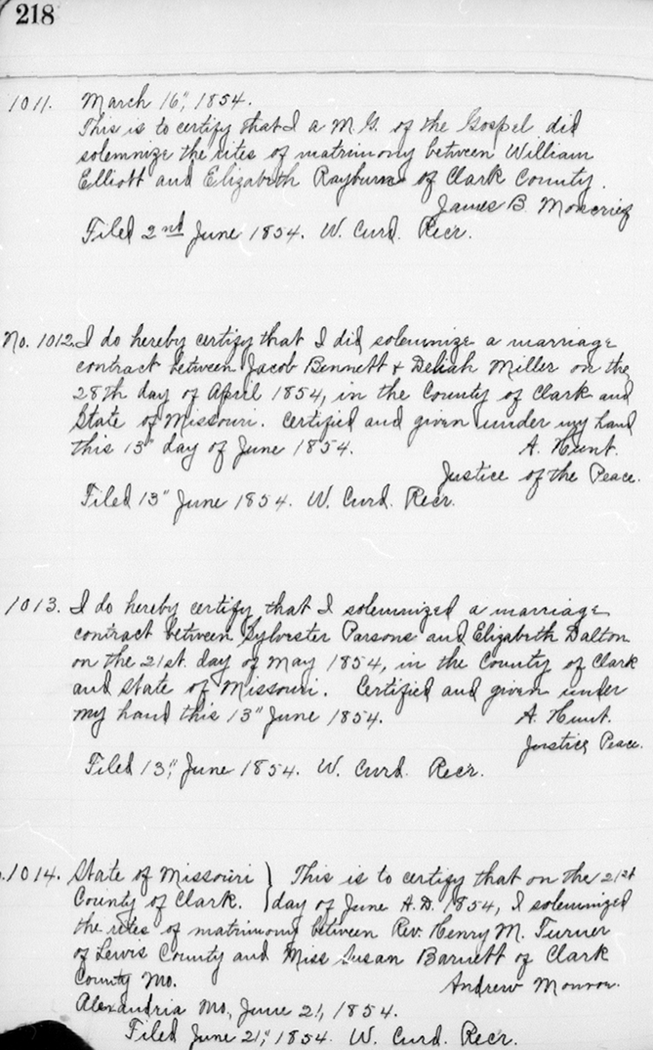 218
1011. March 16", 1854.
This is to certify that I a M.G. of the Gospel did
solemnize the rites of matrimony between William
Elliott and Elizabeth Rayburn of Clark County.
James B.
Filed 2nd June 1854. W. Curd. Recr.
No. 1012. I do hereby certify that I did solemnize a marriage
contract between Jacob Bennett & Deliah Miller on the
28th day of April 1854, in the County of Clark and
State of Missouri. Certified and given under my hand
this 13" day of June 1854. A. Hunt.
Justice of the Peace.
Filed 13" June 1854. W. Curd. Recr.
1013. I do hereby certify that I solemnized a marriage
contract between Sylvester Parsons and Elizabeth Dalton
on the 21st. day of May 1854, in the County of Clark
and State of Missouri. Certified and given under
my hand this 13" June 1854. A. Hunt.
Justice Peace.
Filed 13", June 1854. W. Curd. Recr.
.1014. State of Missouri } This is to certify that on the 21st
County of Clark. } day of June A.D. 1854, I solemnized
the rites of matrimony between Rev. Henry M. Turner
of Lewis County and Miss Susan Barnett of Clark
County Mo. Andrew Monroe.
Alexandria Mo, June 21, 1854.
Filed June 21", 1854. W. Curd. Recr.